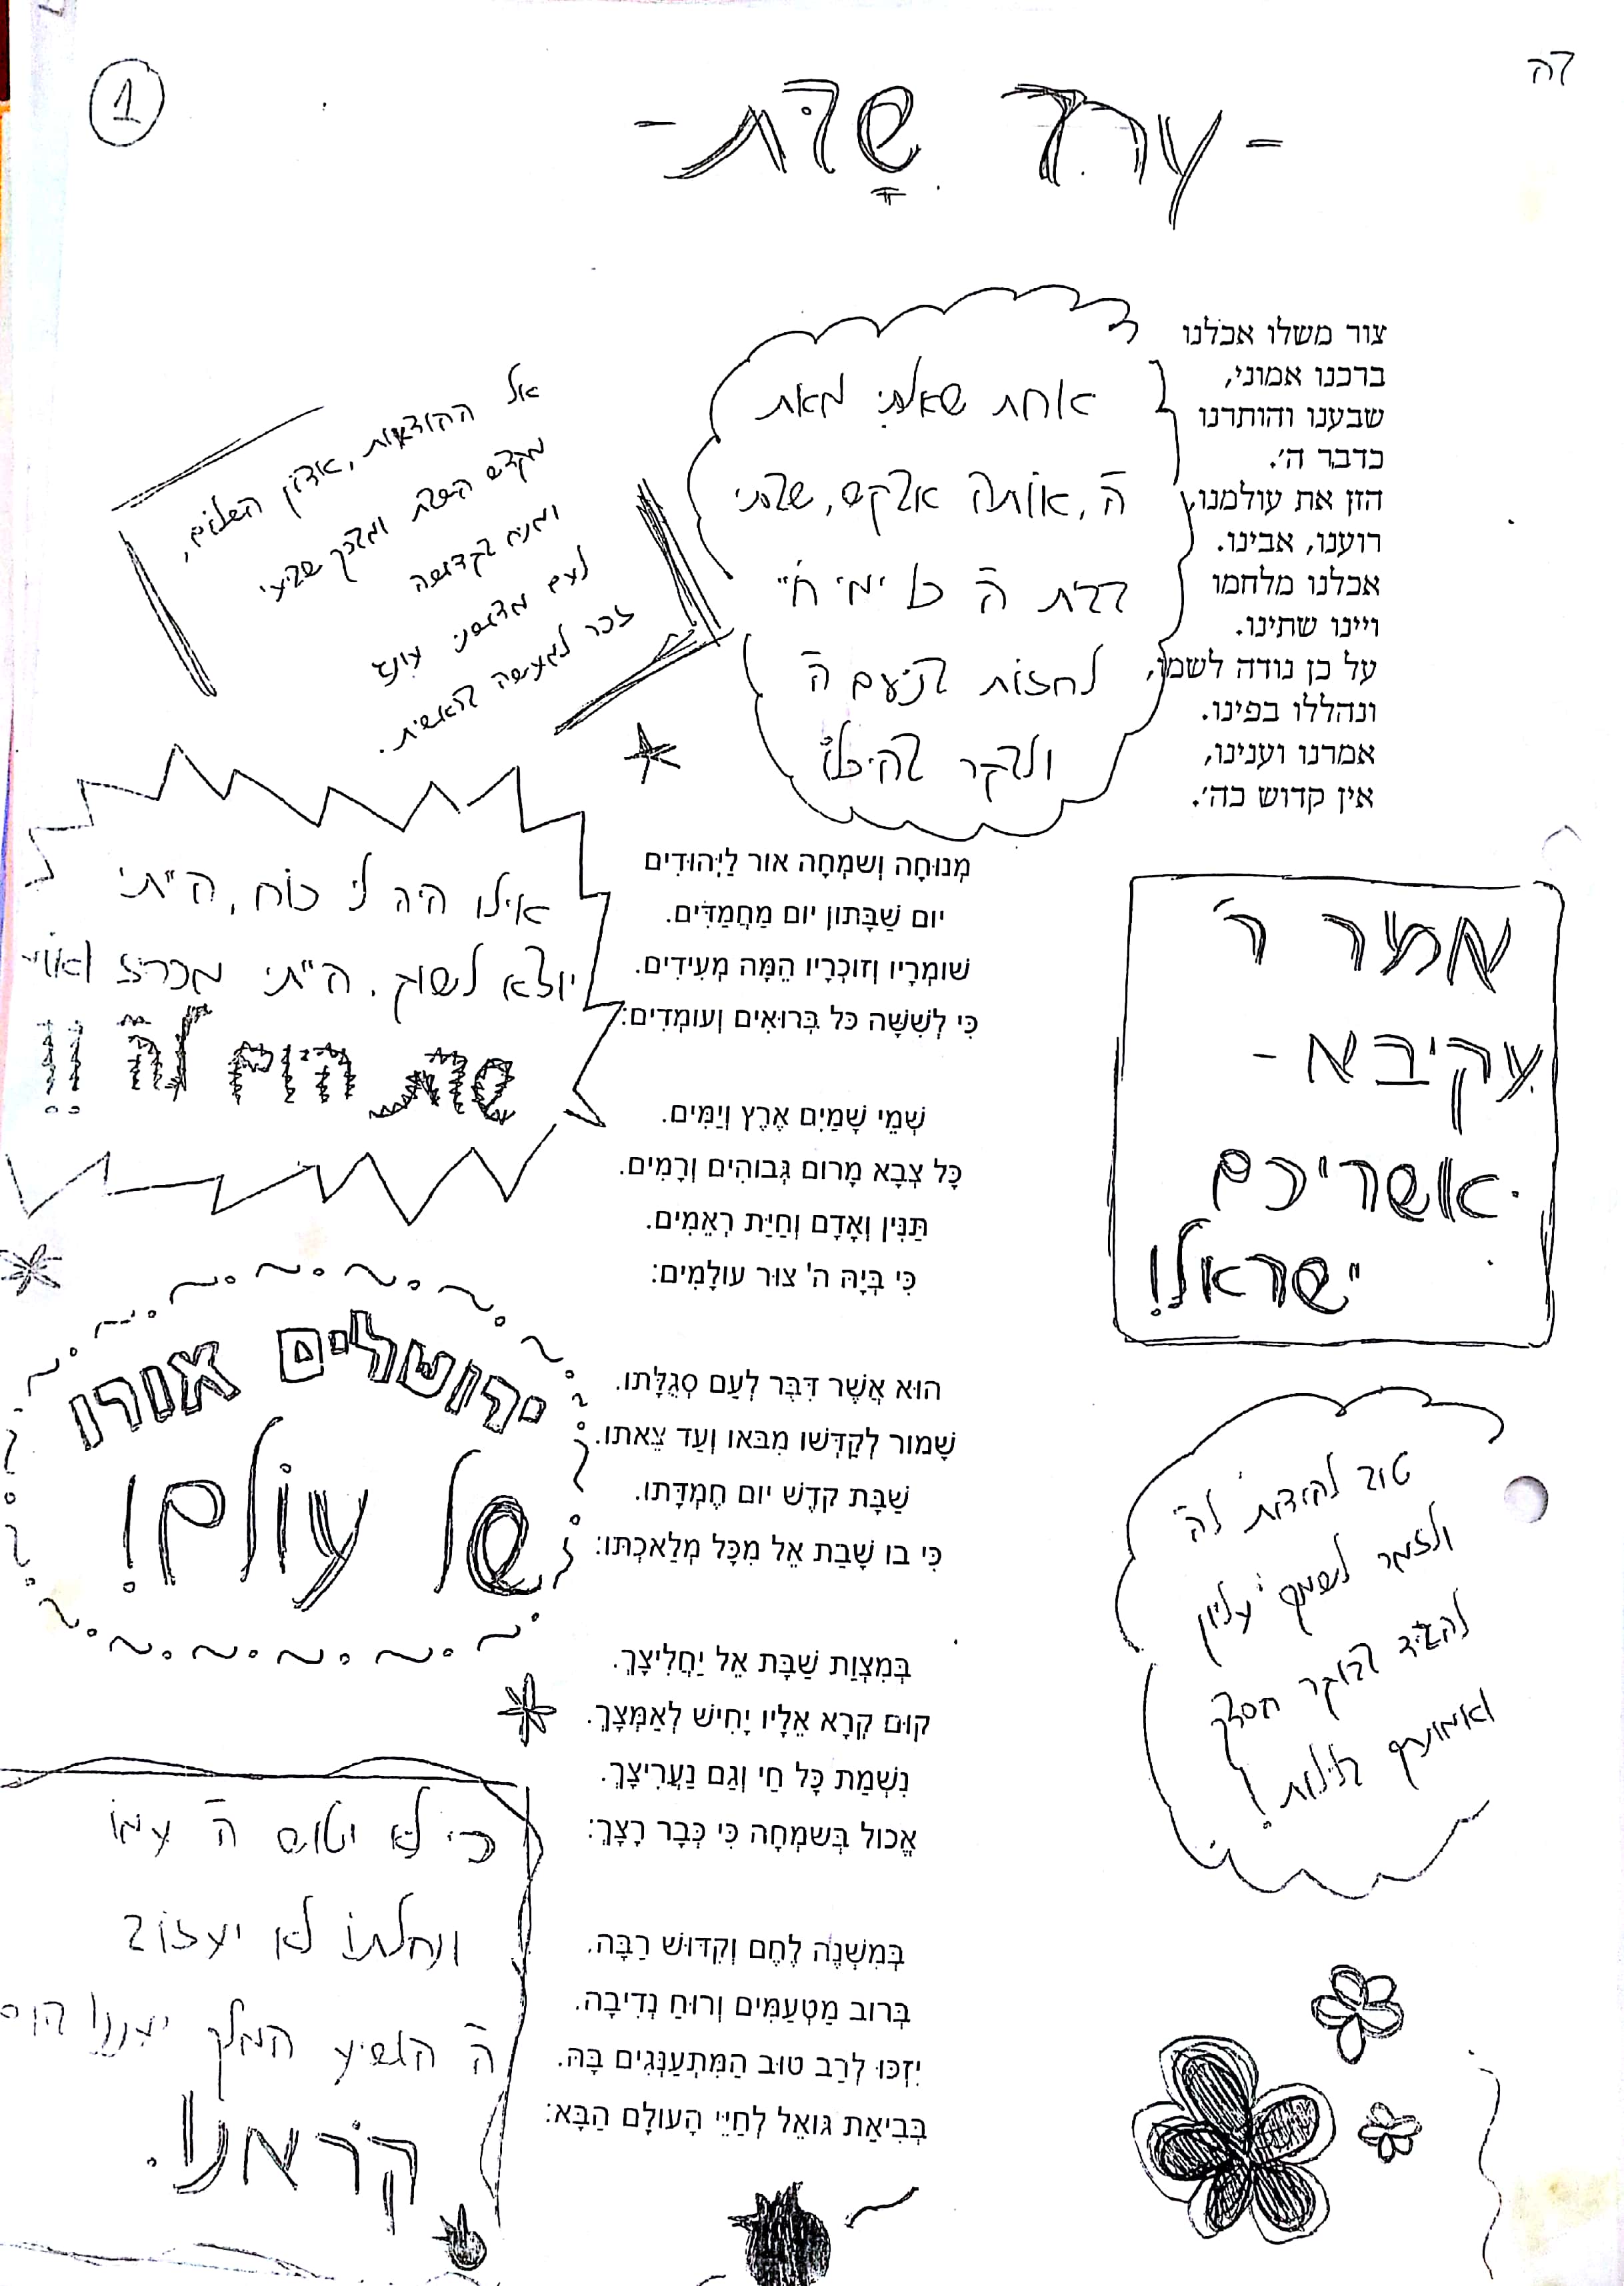 בה
1
- ערב שבת -
צור משלו אכלנו
ברכנו אמוני,
שבענו והותרנו
כדבר ה'.
הזן את עולמנו,
רוענו, אבינו.
אכלנו מלחמו
ויינו שתינו.
על כן נודה לשמו,
ונהללו בפינו.
אמרנו וענינו,
אין קדוש כה'.
אחת שאלתי מאת
ה', אותה אבקש, שבתי
בבית ה' כל ימי חיי
לחזות בנועם ה'
ולבקר בהיכלו
אל ההודאות, אדון השלום,
מקדש השבת ומברך שביעי
ומניח בקדושה
לעם מדושני עונג
זכר למעשה בראשית.
אילו היה לי כוח, הייתי
יוצא לשוק. הייתי מכריז ואומר
שבת היום לה'!!
מְנוּחָה וְשמְחָה אור לַיְּהוּדִים
יום שַׁבָּתון יום מַחֲמַדִּים.
שׁומְרָיו וְזוכְרָיו הֵמָּה מְעִידִים.
כִּי לְשִׁשָּׁה כּל בְּרוּאִים וְעומְדִים:
שְׁמֵי שָׁמַיִם אֶרֶץ וְיַמִּים.
כָּל צְבָא מָרום גְּבוהִים וְרָמִים.
תַּנִּין וְאָדָם וְחַיַּת רְאֵמִים.
כִּי בְּיָהּ ה' צוּר עולָמִים:
הוּא אֲשֶׁר דִּבֶּר לְעַם סְגֻלָּתו.
שָׁמור לְקַדְּשׁו מִבּאו וְעַד צֵאתו.
שַׁבָּת קדֶשׁ יום חֶמְדָּתו.
כִּי בו שָׁבַת אֵל מִכָּל מְלַאכְתּו:
בְּמִצְוַת שַׁבָּת אֵל יַחֲלִיצָךְ.
קוּם קְרָא אֵלָיו יָחִישׁ לְאַמְּצָךְ.
נִשְׁמַת כָּל חַי וְגַם נַעֲרִיצָךְ.
אֱכול בְּשמְחָה כִּי כְּבָר רָצָךְ:
בְּמִשְׁנֶה לֶחֶם וְקִדּוּשׁ רַבָּה.
בְּרוב מַטְעַמִּים וְרוּחַ נְדִיבָה.
יִזְכּוּ לְרַב טוּב הַמִּתְעַנְּגִים בָּהּ.
בְּבִיאַת גּואֵל לְחַיֵּי הָעולָם הַבָּא:
אמר ר'
עקיבא -
אשריכם
ישראל!
ירושלים אורו
של עולם!
טוב להודות לה'
ולזמר לשמך עליון
להגיד בבוקר חסדך
ואמונתך בלילות!
כי לא יטוש ה' עמו
ונחלתו לא יעזוב
ה' הושיע המלך יעננו ביום
קראנו.